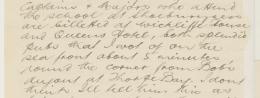 Captains & Majors who attend
the school at Shoeburyness
are billetted at Wickcliffe house
and Queens Hotel, both splendid
pubs that I wot of on the
sea front about 5 minutes
round the corner from Bob's
dugout at Thorpe Bay. I dont
think I'll tell him this as